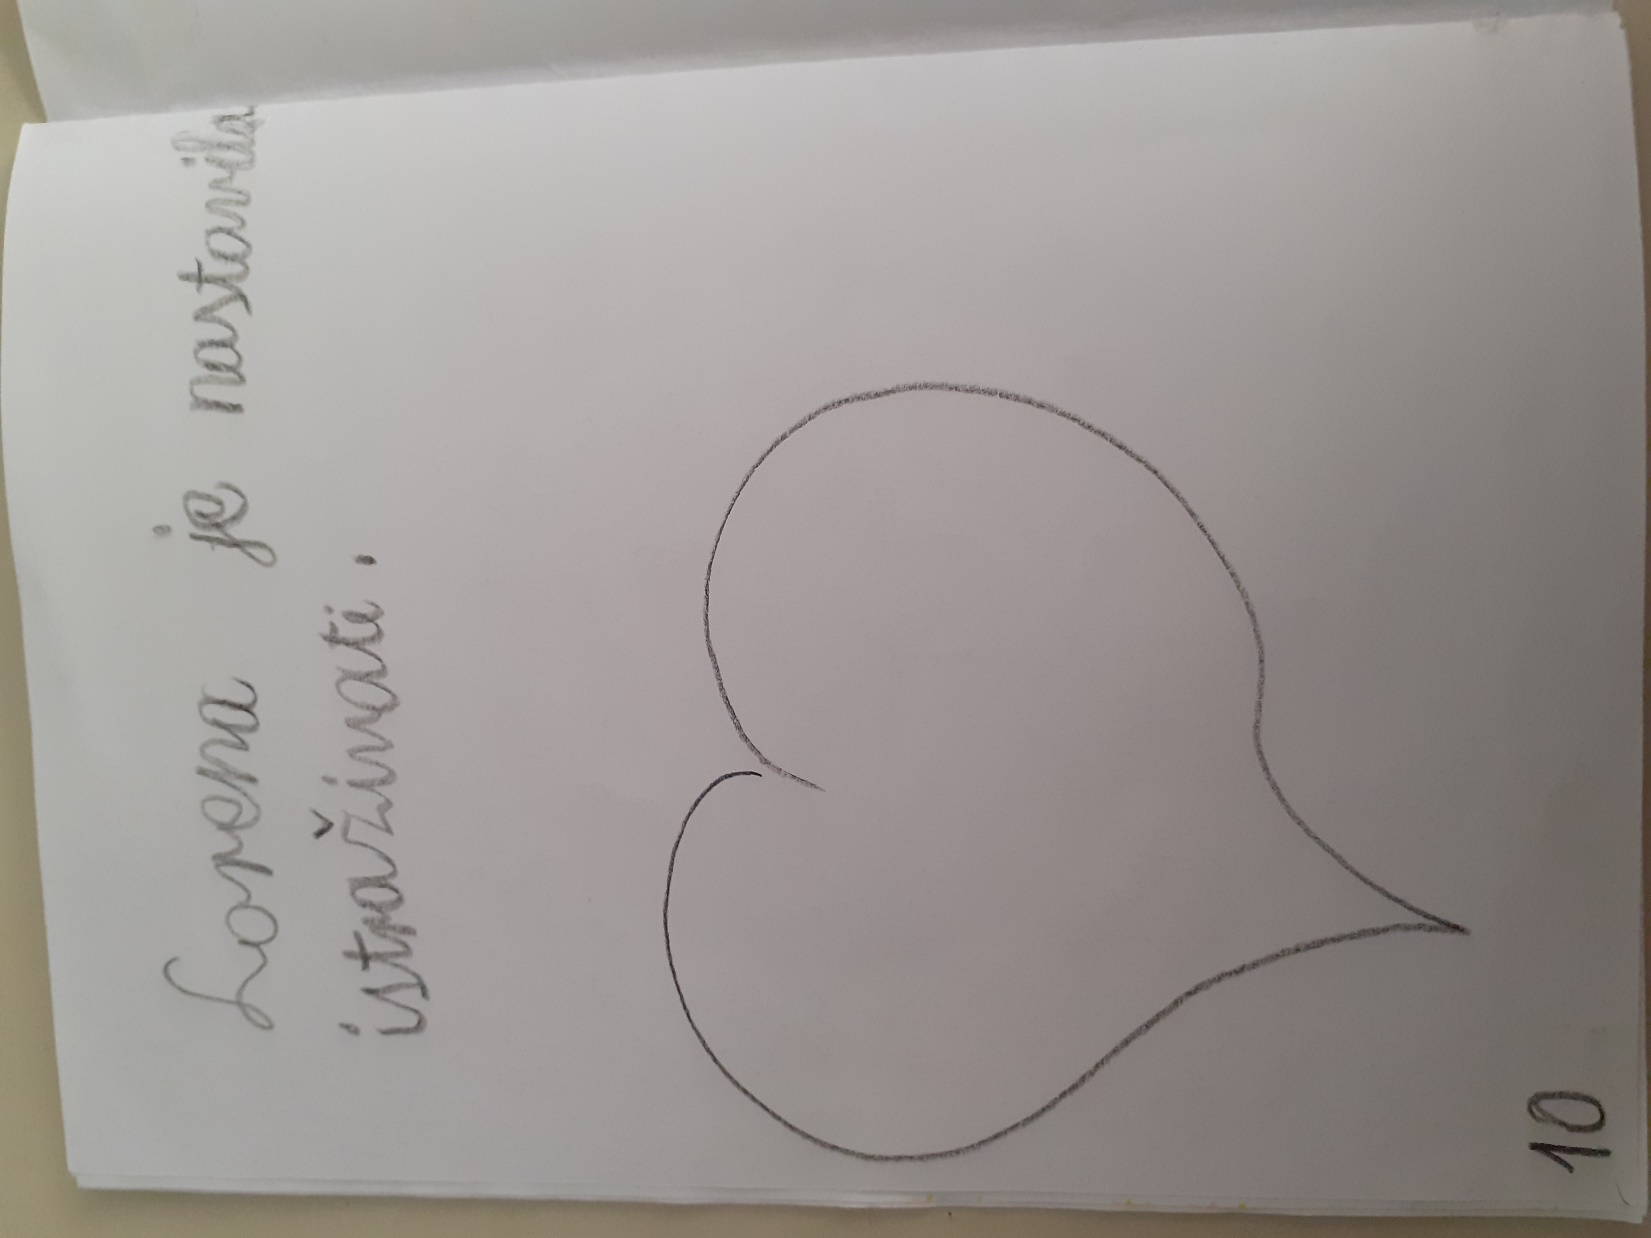 Lorena je nastavila
istraživati.
10